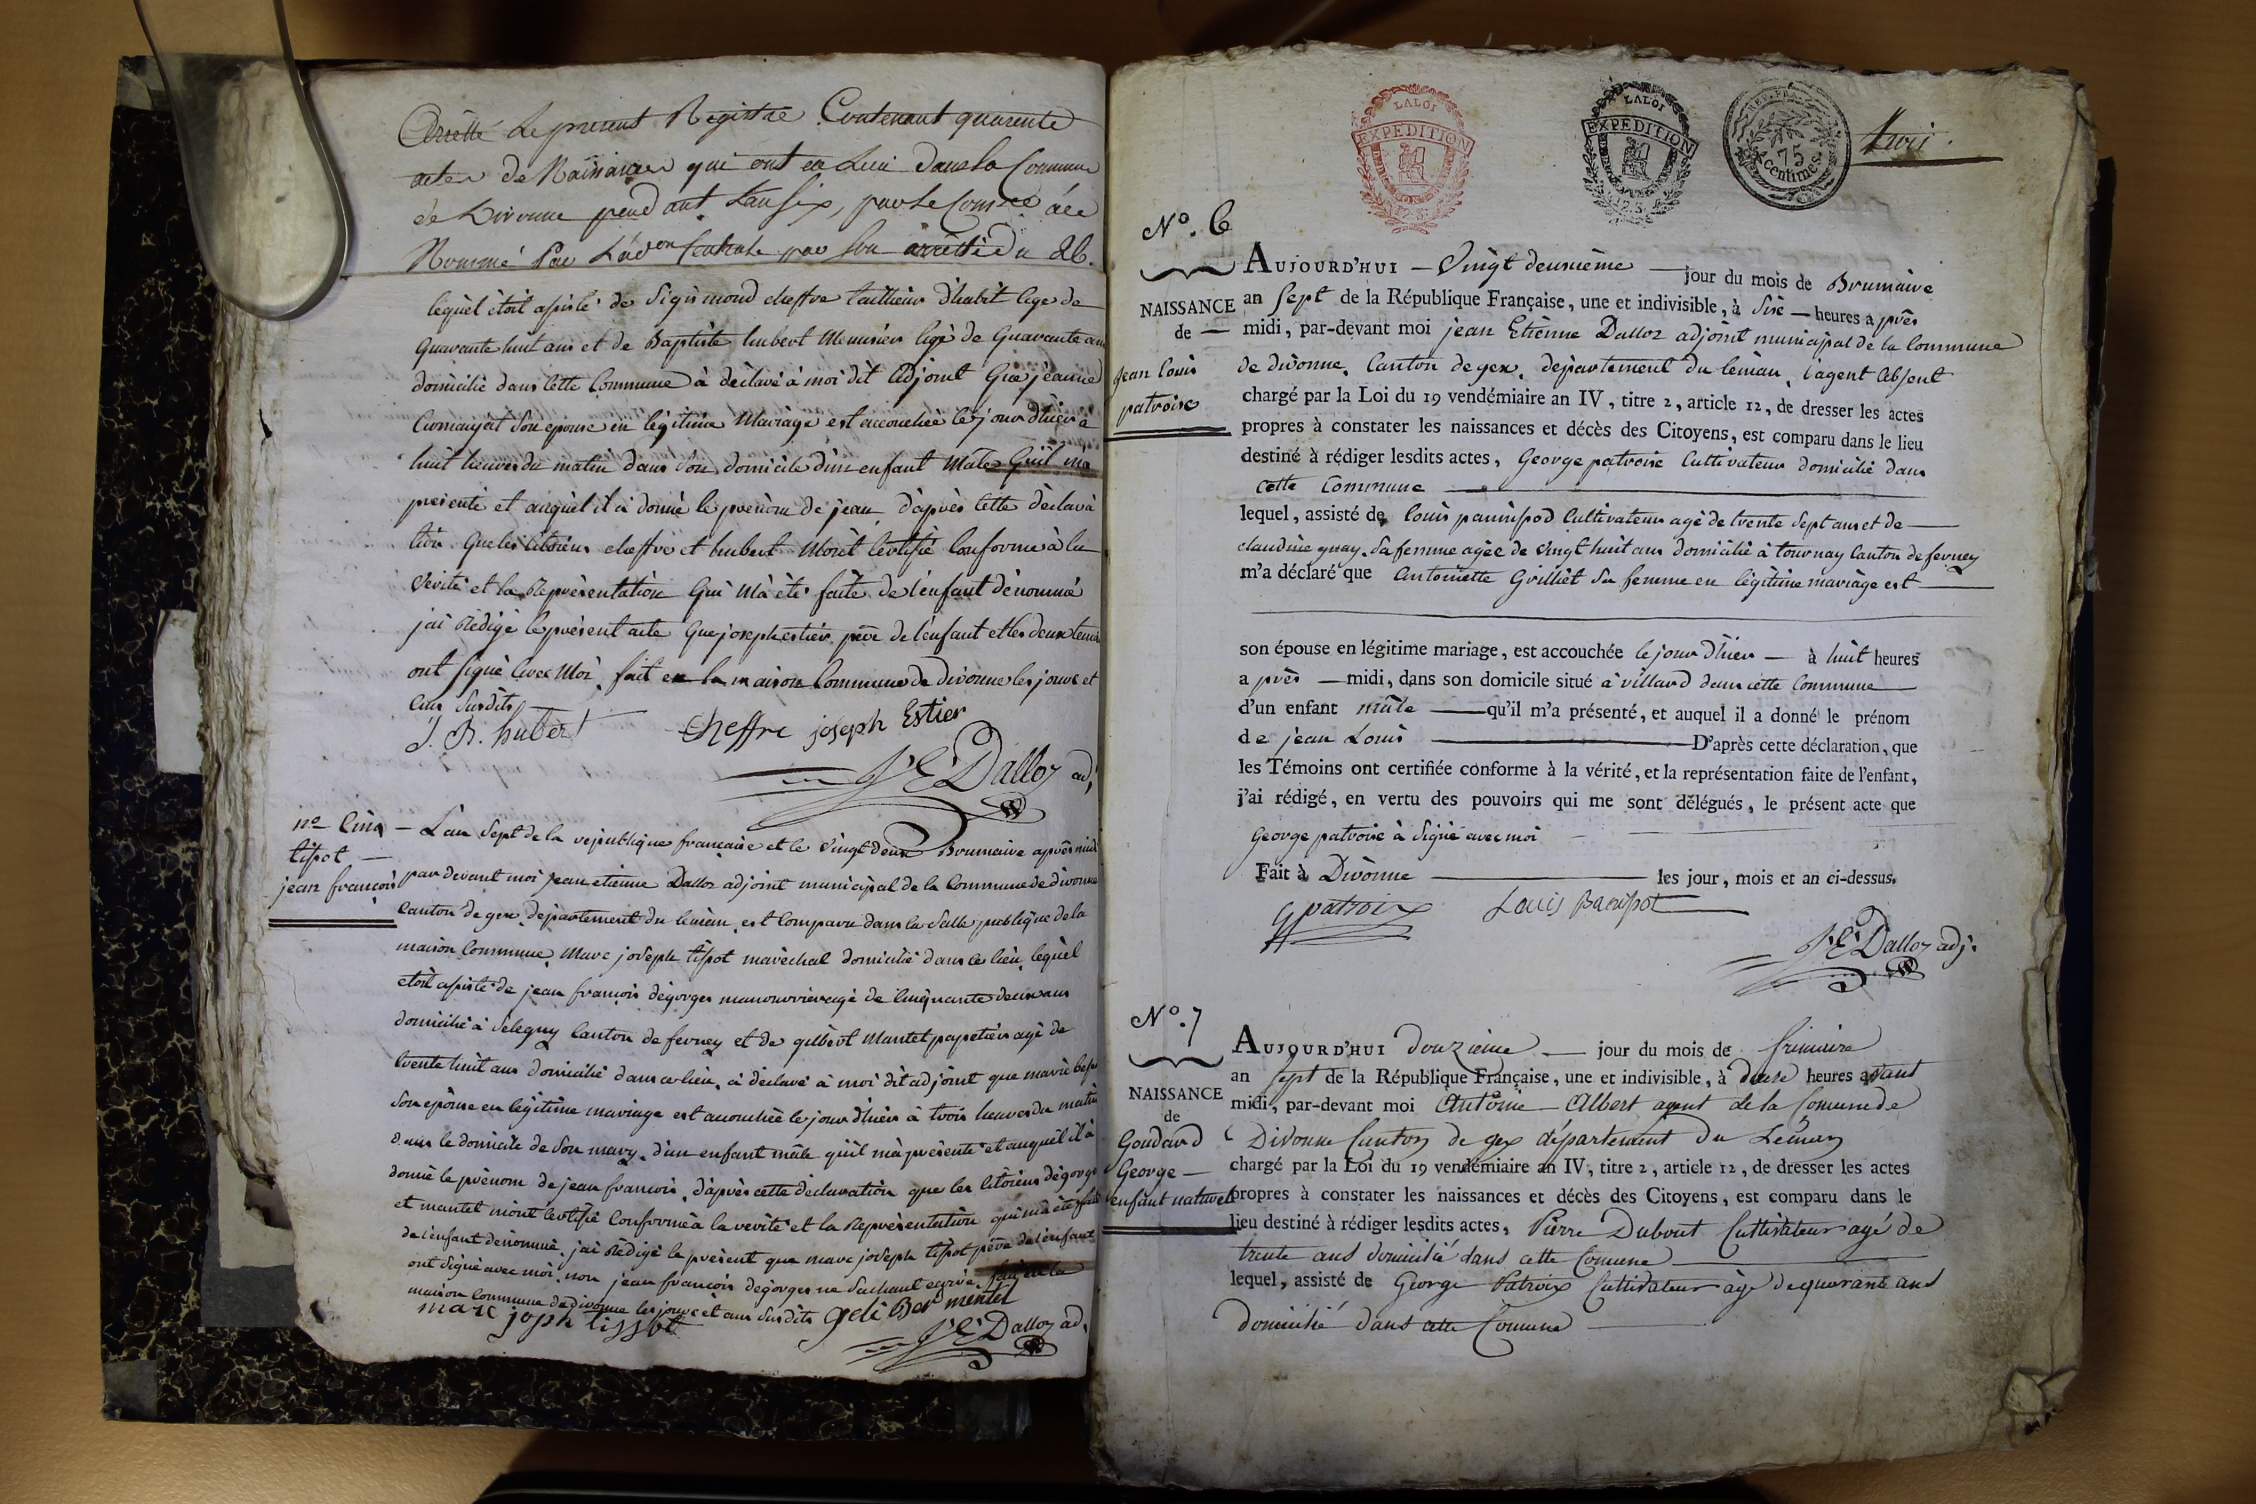 Arrêtté Le present Registre Contenant quarente
actes de Naissances qui ont eu Lieu dans la Commune
de Divonne pendant Lan Six, par le
Nommé Par L'adon Centrale par son arrêtté du 26.
lequel étoit assisté de Sigismond cheffre tailleur d'habit age de
Quarante huit ans et de Baptiste hubert Menusier agé de Quarante ans
domicilié dans cette Commune à déclaré à moi dit Adjoint Que jeanne
son epouse en légitime Mariage est accouchée le jour d'hier à
huit heures du matin dans son domicile d'un enfant Mâle Qu'il m'a
présenté et auquel il à donné le prénom de jean d'après cette déclara
tion Que les citoiens cheffre et hubert M'ont Certifié Conforme à la
Vérité et la Représentation Qui M'à été faite de l'enfant dénommé
j'ai Rédigé le présent acte Que joseph estier père de l'enfant et les deux temoins
ont signé avec Moi. fait en la maison Commune de divonne les jours et
ans susdits
J. B. hubert cheffre joseph Estier
J. E. Dalloz adj.
no Cinq
tissot
jean françois
L'an sept de la republique française et le vingt deux Brumaire après midi
par devant moi jean etienne Dalloz adjoint municipal de la Commune de divonne
Canton de gex departement du léman, est comparu dans la salle publique de la
maison Commune, Marc joseph tissot maréchal domicilié dans ce lieu, lequel
étoit assisté de jean françois dégorges manouvrier agé de Cinquante deux ans
domicilié à Canton de ferney et de gilbert Mantet papetier agé de
trente huit ans domicilié dans ce lieu, à déclaré à moi dit adjoint que marie
son epouse en légitime mariage est accouchée le jour d'hier à trois heures du matin
dans le domicile de son mary, d'un enfant mâle qu'il m'à présenté et auquel il à
donné le prénom de jean francois, d'après cette déclaration que les citoiens dégorges
et mantet m'ont certifié Conforme à la verité et la Représentation qui m'a été faite
de l'enfant denommé, j'ai Rédigé le présent que marc joseph tissot père de l'enfant
ont signé avec moi, non jean francois dégorges ne sachant ecrire, fait en la
maison Commune de divonne les jours et ans susdits
marc joph tissot
J. E. Dalloz ad.
LA LOI
EXPEDITION
LA LOI
EXPEDITION
75
centimes.
No. 6
NAISSANCE
de
jean Louis
patroix
AUJOURD'HUI — Vingt deuxième — jour du mois de Brumaire
an sept de la République Française, une et indivisible, à six — heures après
midi, par-devant moi jean Etiènne Dalloz adjoint municipal de la Commune
de divonne. Canton de gex. département du léman, l'agent Absent
chargé par la Loi du 19 vendémiaire an IV, titre 2, article 12, de dresser les actes
propres à constater les naissances et décès des Citoyens, est comparu dans le lieu
destiné à rédiger lesdits actes, George patroix Cultivateur domicilié dans
cette Commune
lequel, assisté de louis panissod Cultivateur agé de trente sept ans et de
claudine sa femme agée de vingt huit ans domicilié à tournay Canton de ferney
m'a déclaré que Antoinette Grilliet sa femme en légitime mariage est
son épouse en légitime mariage, est accouchée le jour d'hier — à huit heures
après — midi, dans son domicile situé à villard dans cette Commune
d'un enfant mâle — qu'il m'a présenté, et auquel il a donné le prénom
de jean Louis — D'après cette déclaration, que
les Témoins ont certifiée conforme à la vérité, et la représentation faite de l'enfant,
j'ai rédigé, en vertu des pouvoirs qui me sont délégués, le présent acte que
George patroix à signé avec moi
Fait à Divonne — les jour, mois et an ci-dessus.
G patroix Louis Panissot
J. E. Dalloz adj.
No. 7
NAISSANCE
de
Goudard
George —
enfant naturel
AUJOURD'HUI douzieme — jour du mois de frimaire
an sept de la République Française, une et indivisible, à heures avant
midi, par-devant moi Antoine Albert agent de la Comune de
Divonne Canton de gex département du Léman
chargé par la Loi du 19 vendémiaire an IV, titre 2, article 12, de dresser les actes
propres à constater les naissances et décès des Citoyens, est comparu dans le
lieu destiné à rédiger lesdits actes, Pierre Dubout Cultivateur agé de
trente ans domicilié dans cette Comune
lequel, assisté de George Patroix Cultivateur âgé de quarante ans
domicilié dans cette Comune